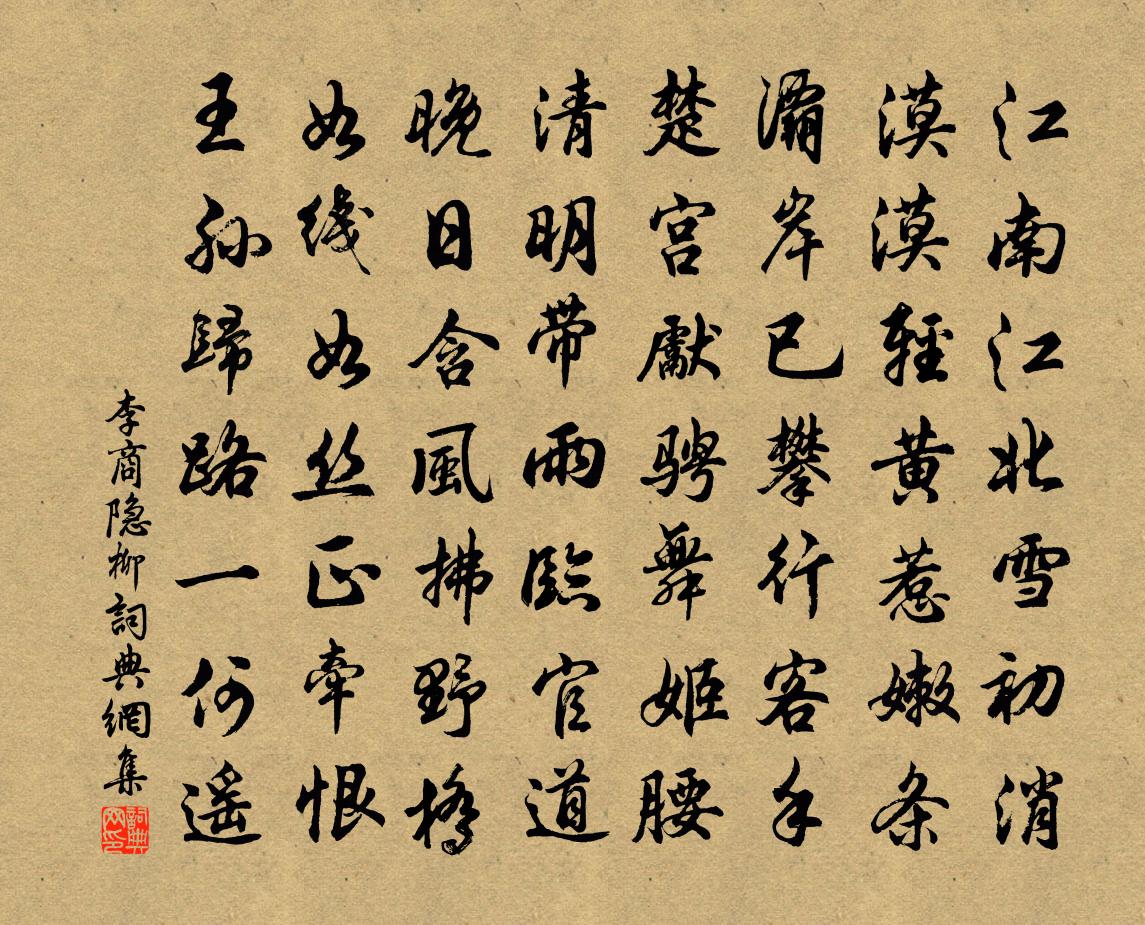 江南江北雪初消
漠漠輕黄惹嫩条
灞岸已攀行客手
楚宫獻骋舞姬腰
清明带雨臨官道
晚日含風拂野橋
如线如丝正牵恨
王孙歸路一何遥
李商隐柳詞典網集
詞典网印